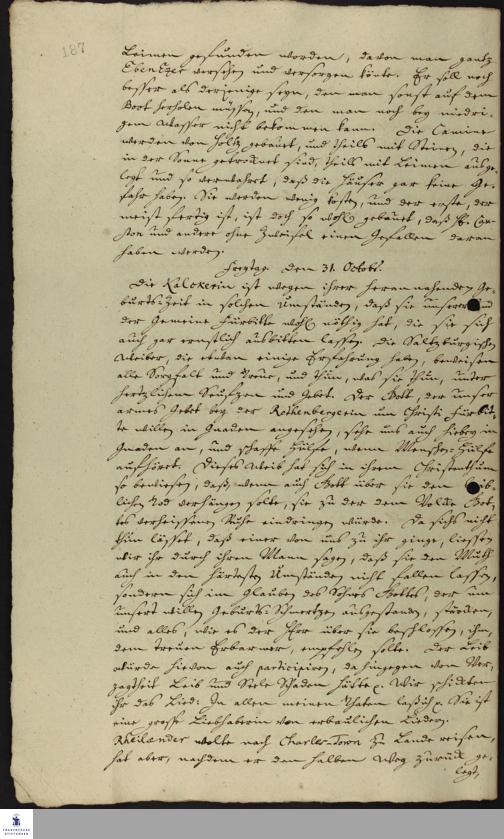 187
Leimen gefunden worden, davon man gantz
EbenEzer versehen und versorgen könte. Er soll noch
besser als derjenige seyn, den man sonst auf dem
Boot herholen müssen, und den man noch bey niedri-
gem Wasser nicht bekommen kann. Die Camine
werden von Holtz gebauet, und theils mit Steinen, die
in der Sonne getrocknet sind, theils mit Leimen ausge-
legt und so verwahrt, daß die Häuser gar keine Ge-
fahr haben. Sie werden wenig kosten, und der erste, der
meist fertig ist, ist doch so wohl gebauet, daß H. Cau-
ston und andere ohne Zweifel einen Gefallen daran
haben werden.
Freytag den 31. Octobr.
Die Kalckerin ist wegen ihrer herannahenden Ge-
burts-Zeit in solchen Umständen, daß sie unserer und
der Gemeine Fürbitte wohl nöthig hat, die sie sich
auch gar ernstlich ausbitten lassen. Die Saltzburgischen
Weiber, die etwan einige Erfahrung haben, beweisen
alle Sorgfalt und Treue, und thun, was sie thun, unter
hertzlichem Seufzen und Gebet. Der Gott, der unser
armes Gebet bey der Rothenbergerin um Christi Fürbit-
te willen in Gnaden angesehen, sehe uns auch hiebey in
Gnaden an, und schaffe Hülfe, wenn Menschen-Hülfe
aufhöret. Dieses Weib hat sich in ihrem Christenthum
so bewiesen, daß, wenn auch Gott über sie den Leib-
lichen Tod verhängen solte, sie zu der dem Volcke Got-
tes verheissenen Ruhe eindringen würde. Da sichs nicht
thun lässet, daß einer von uns zu ihr ginge, liessen
wir ihr durch ihren Mann sagen, daß sie den Muth
auch in den härtesten Umständen nicht fallen lassen,
sondern sich im Glauben des Sohnes Gottes, der um
unsert willen Geburts-Schmertzen ausgestanden, stärcken,
und alles, wie es der Herr über sie beschlossen, ihm,
dem treuen Erbarmer, empfehlen solte. Der Leib
würde hievon auch participiren, da hingegen vom Ver-
zagtseyn Leib und Seele Schaden hätte. Wir schickten
ihr das Lied: In allen meinen Thaten laß ich. Sie ist
eine grosse Liebhaberin von erbaulichen Liedern.
Rheilænder wolte nach Charles-Town zu Lande reisen,
hat aber, nachdem er den halben Weg zurück ge-
legt
FRANCKESCHE
STIFTUNGEN